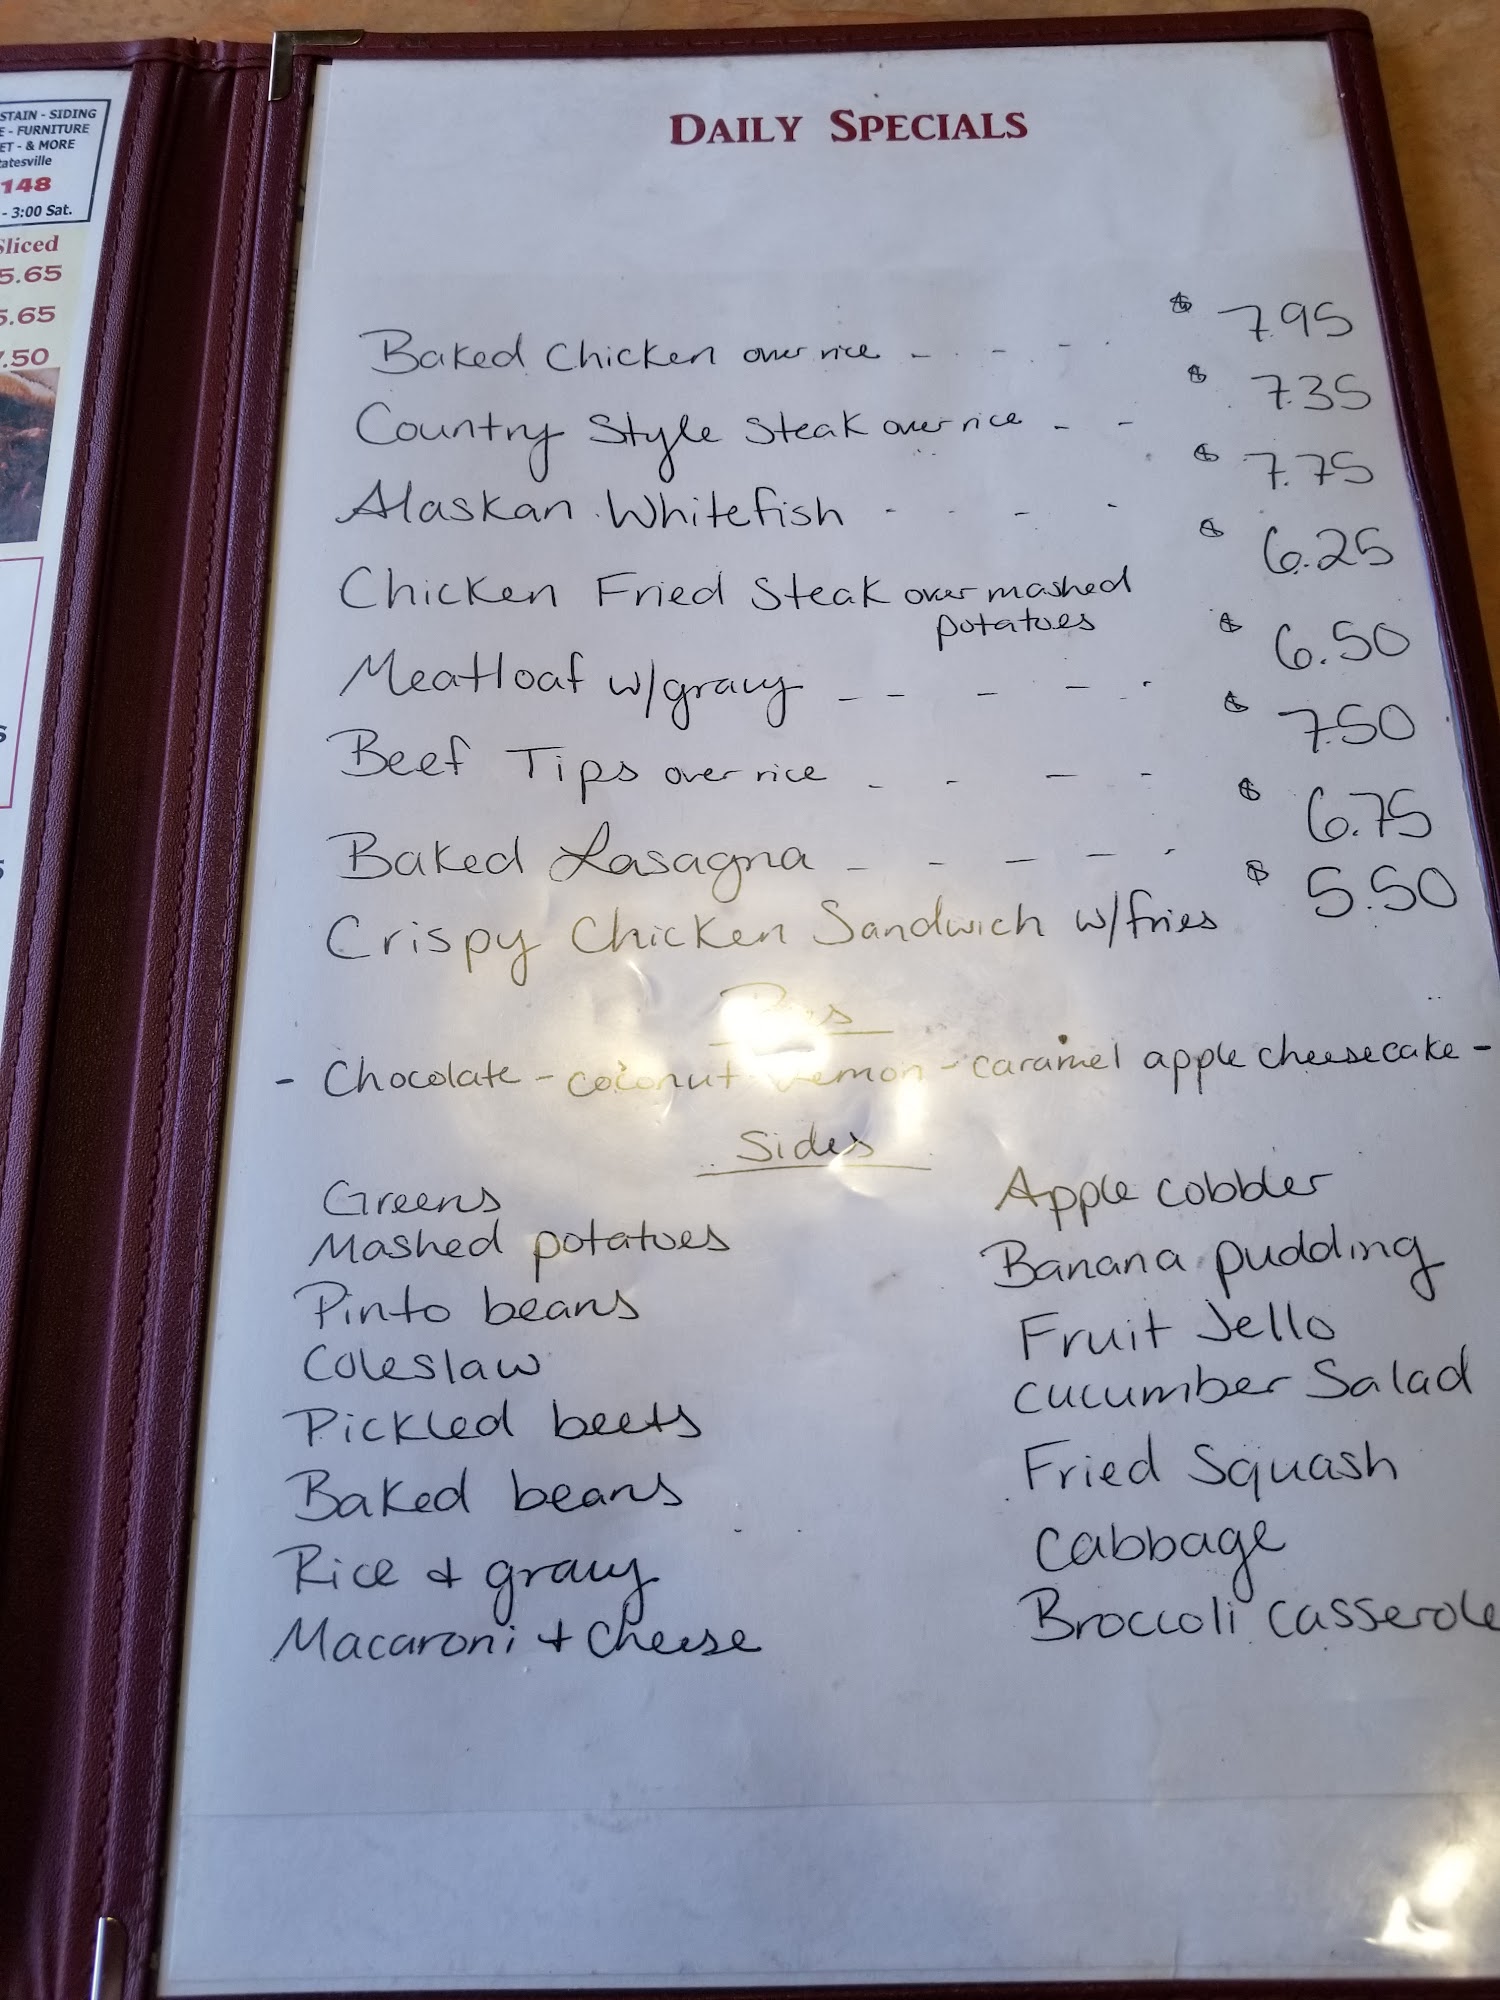 STAIN - SIDING
- FURNITURE
ET - & MORE
atesville
148
- 3:00 Sat.
Sliced
5.65
5.65
.50
DAILY SPECIALS
Baked Chicken over rice - - - - $ 7.95
Country Style Steak over rice - - $ 7.35
Alaskan Whitefish - - - - $ 7.75
Chicken Fried Steak over mashed $ 6.25
potatoes
Meatloaf w/gravy - - - - - $ 6.50
Beef Tips over rice - - - - $ 7.50
Baked Lasagna - - - - - $ 6.75
Crispy Chicken Sandwich w/fries $ 5.50
- Chocolate - coconut - Lemon - caramel apple cheesecake -
Sides
Greens
Mashed potatoes
Pinto beans
Coleslaw
Pickled beets
Baked beans
Rice + gravy
Macaroni + Cheese
Apple cobbler
Banana pudding
Fruit Jello
cucumber Salad
Fried Squash
Cabbage
Broccoli casserole